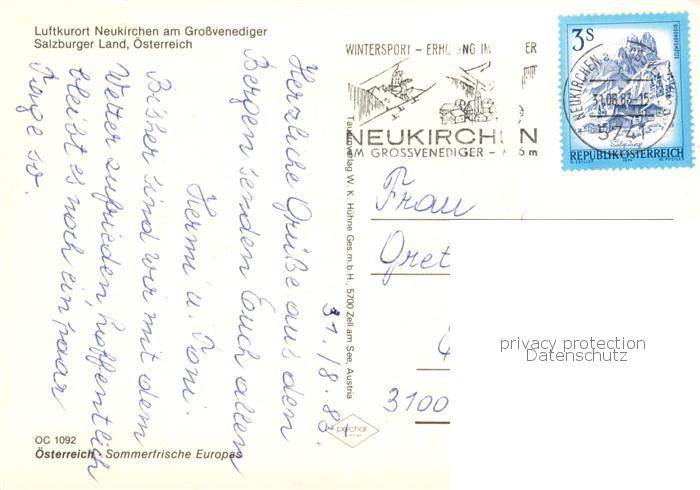 Luftkurort Neukirchen am Großvenediger
Salzburger Land, Österreich
WINTERSPORT - ERHO UNG IM ER
NEUKIRCHEN
AM GROSSVENEDIGER - 6m
3S
NEUKIRCHEN a.
31.08.83-15
5741
REPUBLIK ÖSTERREICH
31./8.83.
Herzliche Grüße aus den
Bergen senden Euch allen
Hermi u. Toni.
Bisher sind wir mit dem
Wetter zufrieden, hoffentlich
bleibt es noch ein paar
Tage so.
Tauernverlag W. K. Hühne Ges.m.b.H., 5700 Zell am See, Austria
Frau
Gret
3100
privacy protection
Datenschutz
OC 1092
Österreich - Sommerfrische Europas